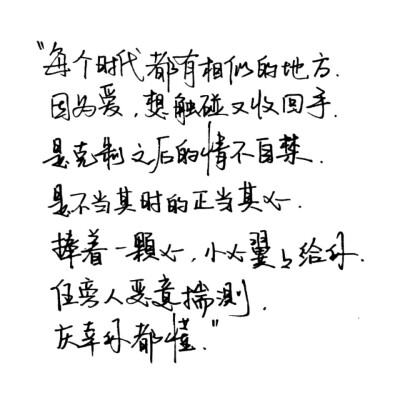 "每个时代都有相似的地方.
因为爱,想触碰又收回手.
是克制之后的情不自禁.
是不当其时的正当其心.
捧着一顆心,小心翼々给你.
任旁人恶意揣測,
庆幸你都懂."